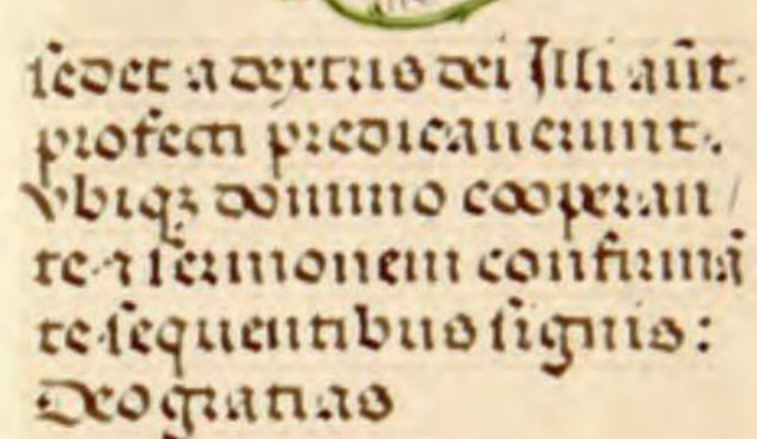 sedet a dextris dei Illi aūt·
profecti predicauerunt·.
vbiqꝫ domino cooperan/
te·⁊ sermonem confirmā
te·sequentibus signis:
Deo gratias